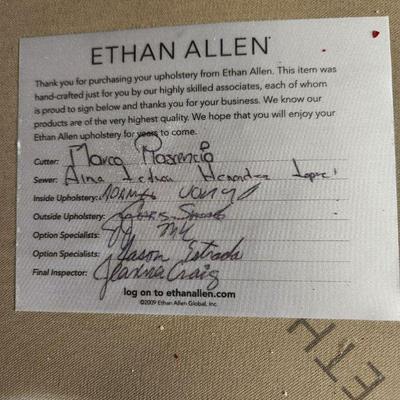 ETHAN ALLEN
Thank you for purchasing your upholstery from Ethan Allen. This item was
hand-crafted just for you by our highly skilled associates, each of whom
is proud to sign below and thanks you for your business. We know our
products are of the very highest quality. We hope that you will enjoy your
Ethan Allen upholstery for years to come.
Cutter: Marco
Sewer: Alma Hernandez Lopez
Inside Upholstery:
Outside Upholstery:
Option Specialists:
Option Specialists: Jason Estrada
Final Inspector: Jeanna Craig
log on to ethanallen.com
©2009 Ethan Allen Global, Inc.
ETH